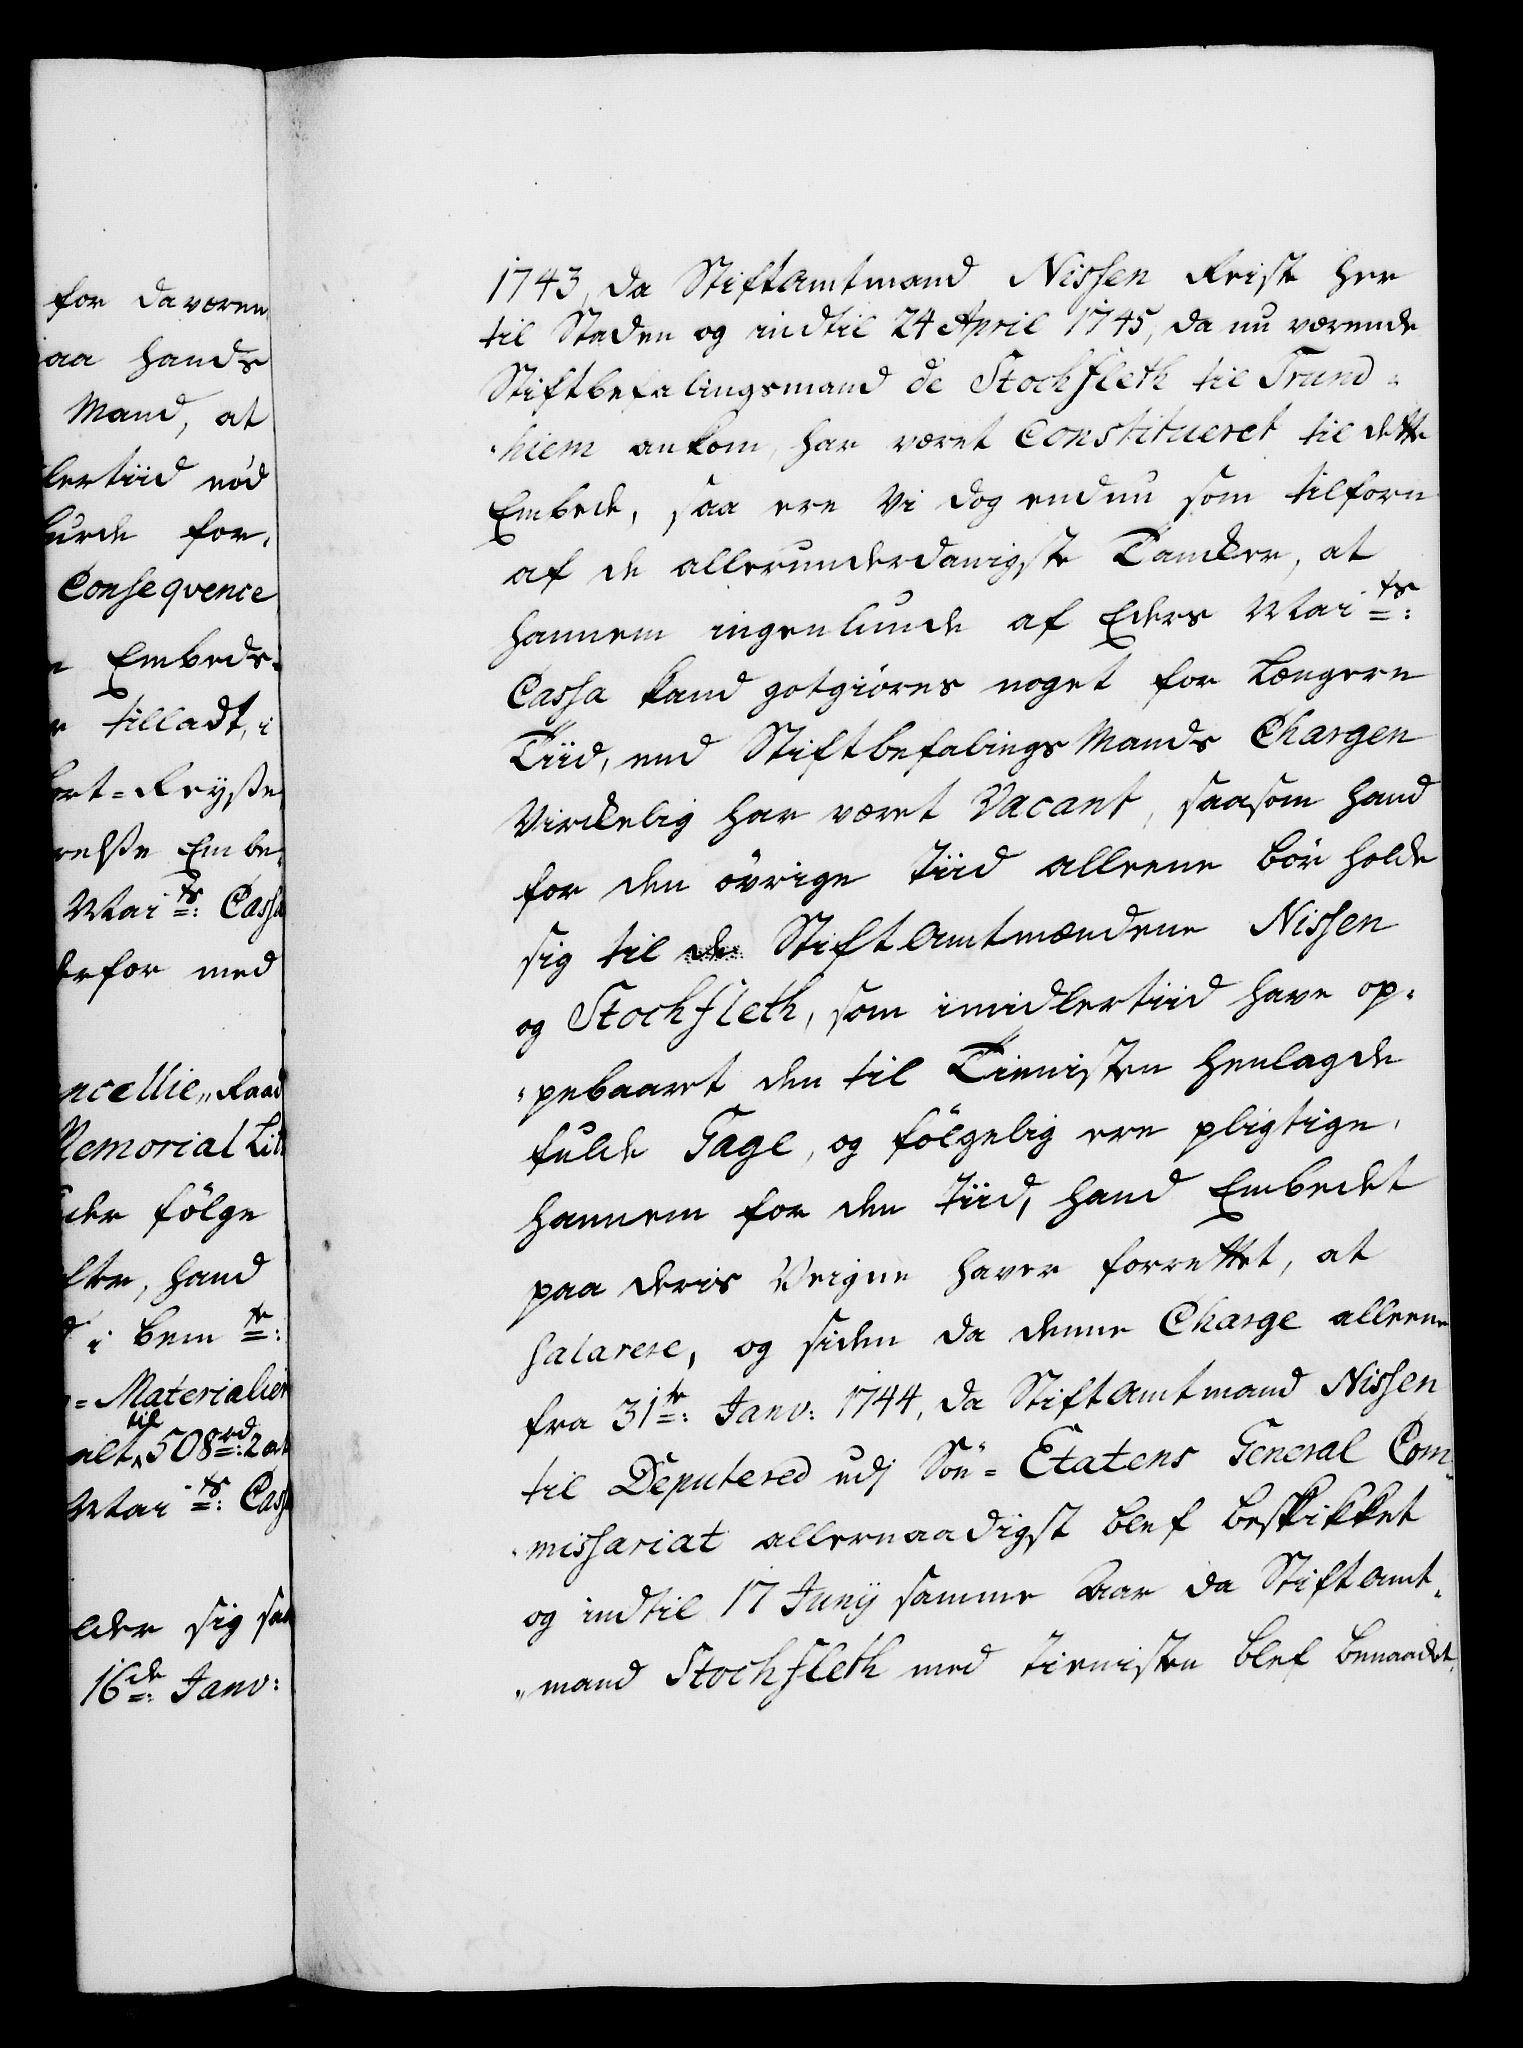 for daværen
aa hands
Mand, at
lertiid nød
burde for,
Consequence
Embeds-
tilladt, i
ort-Reyse
relsse Embe,
Mai ts: Cassa
derfor med
ncellie„Raad
Memorial Lit
der følge
hand
i bem te:
=Materialier
alt til 508 rd: 2
Mai ts: Cass
elder sig saa
16 de: Janv:
1743, da Stiftamtmand Nissen Reiste her
til Staden og indtil 24 April 1745, da nu værende
Stiftbefalingsmand de Stochfleth til Trund-
-hiem ankom, har været Constitueret til dette
Embede, saa ere Vi dog endnu som tilforn
af de allerunderdanigste Tancker, at
hannem ingenlunde af Eders Mai ts:
Cassa kand gotgiöres noget for Længere
Tiid, end StiftbefalingsMands Chargen
Virckelig har været Vacant, saasom hand
for den övrige Tiid alleene bör holde
sig til de StiftAmtmændene Nissen
og Stochfleth, som imidlertiid have op-
-pebaaret den til Tienisten henlagde
fulde Gage, og fölgelig ere pligtige,
hannem for den Tiid, hand Embedet
paa deris Veigne haver forrettet, at
Salarere, og siden da denne Charge alleene
fra 31 te: Janv: 1744, da StiftAmtmand Nissen
til Deputered udj Söe=Etatens General Com-
-missariat allernaadigst blef beskikket
og indtil 17 Junij samme Aar da StiftAmt-
„mand Stochfleth med Tienisten blef benaadet,